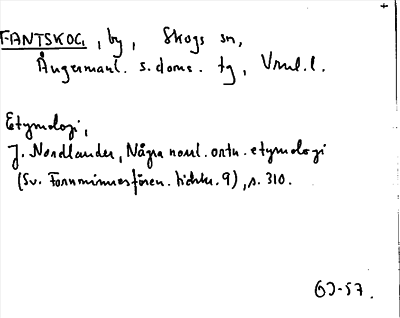 FANTSKOG, by, Skogs sn,
Ångermanl. s. doms. tg, Vnrl. l.
Etymologi,
J. Nordlander, Några norrl. ortn. etymologi
(Sv. Fornminnesfören. tidskr. 9), s. 310.
OJ-57.